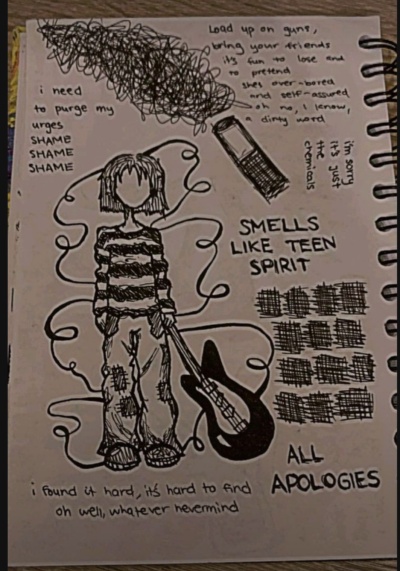 Load up on guns,
bring your friends
it's fun to lose and
to pretend
shes over-bored
and self-assured
oh no, i know,
a dirty word
i need
to purge my
urges
SHAME
SHAME
SHAME
i'm sorry
it's just
the
chemicals
SMELLS
LIKE TEEN
SPIRIT
ALL
APOLOGIES
i found it hard, it's hard to find
oh well, whatever nevermind